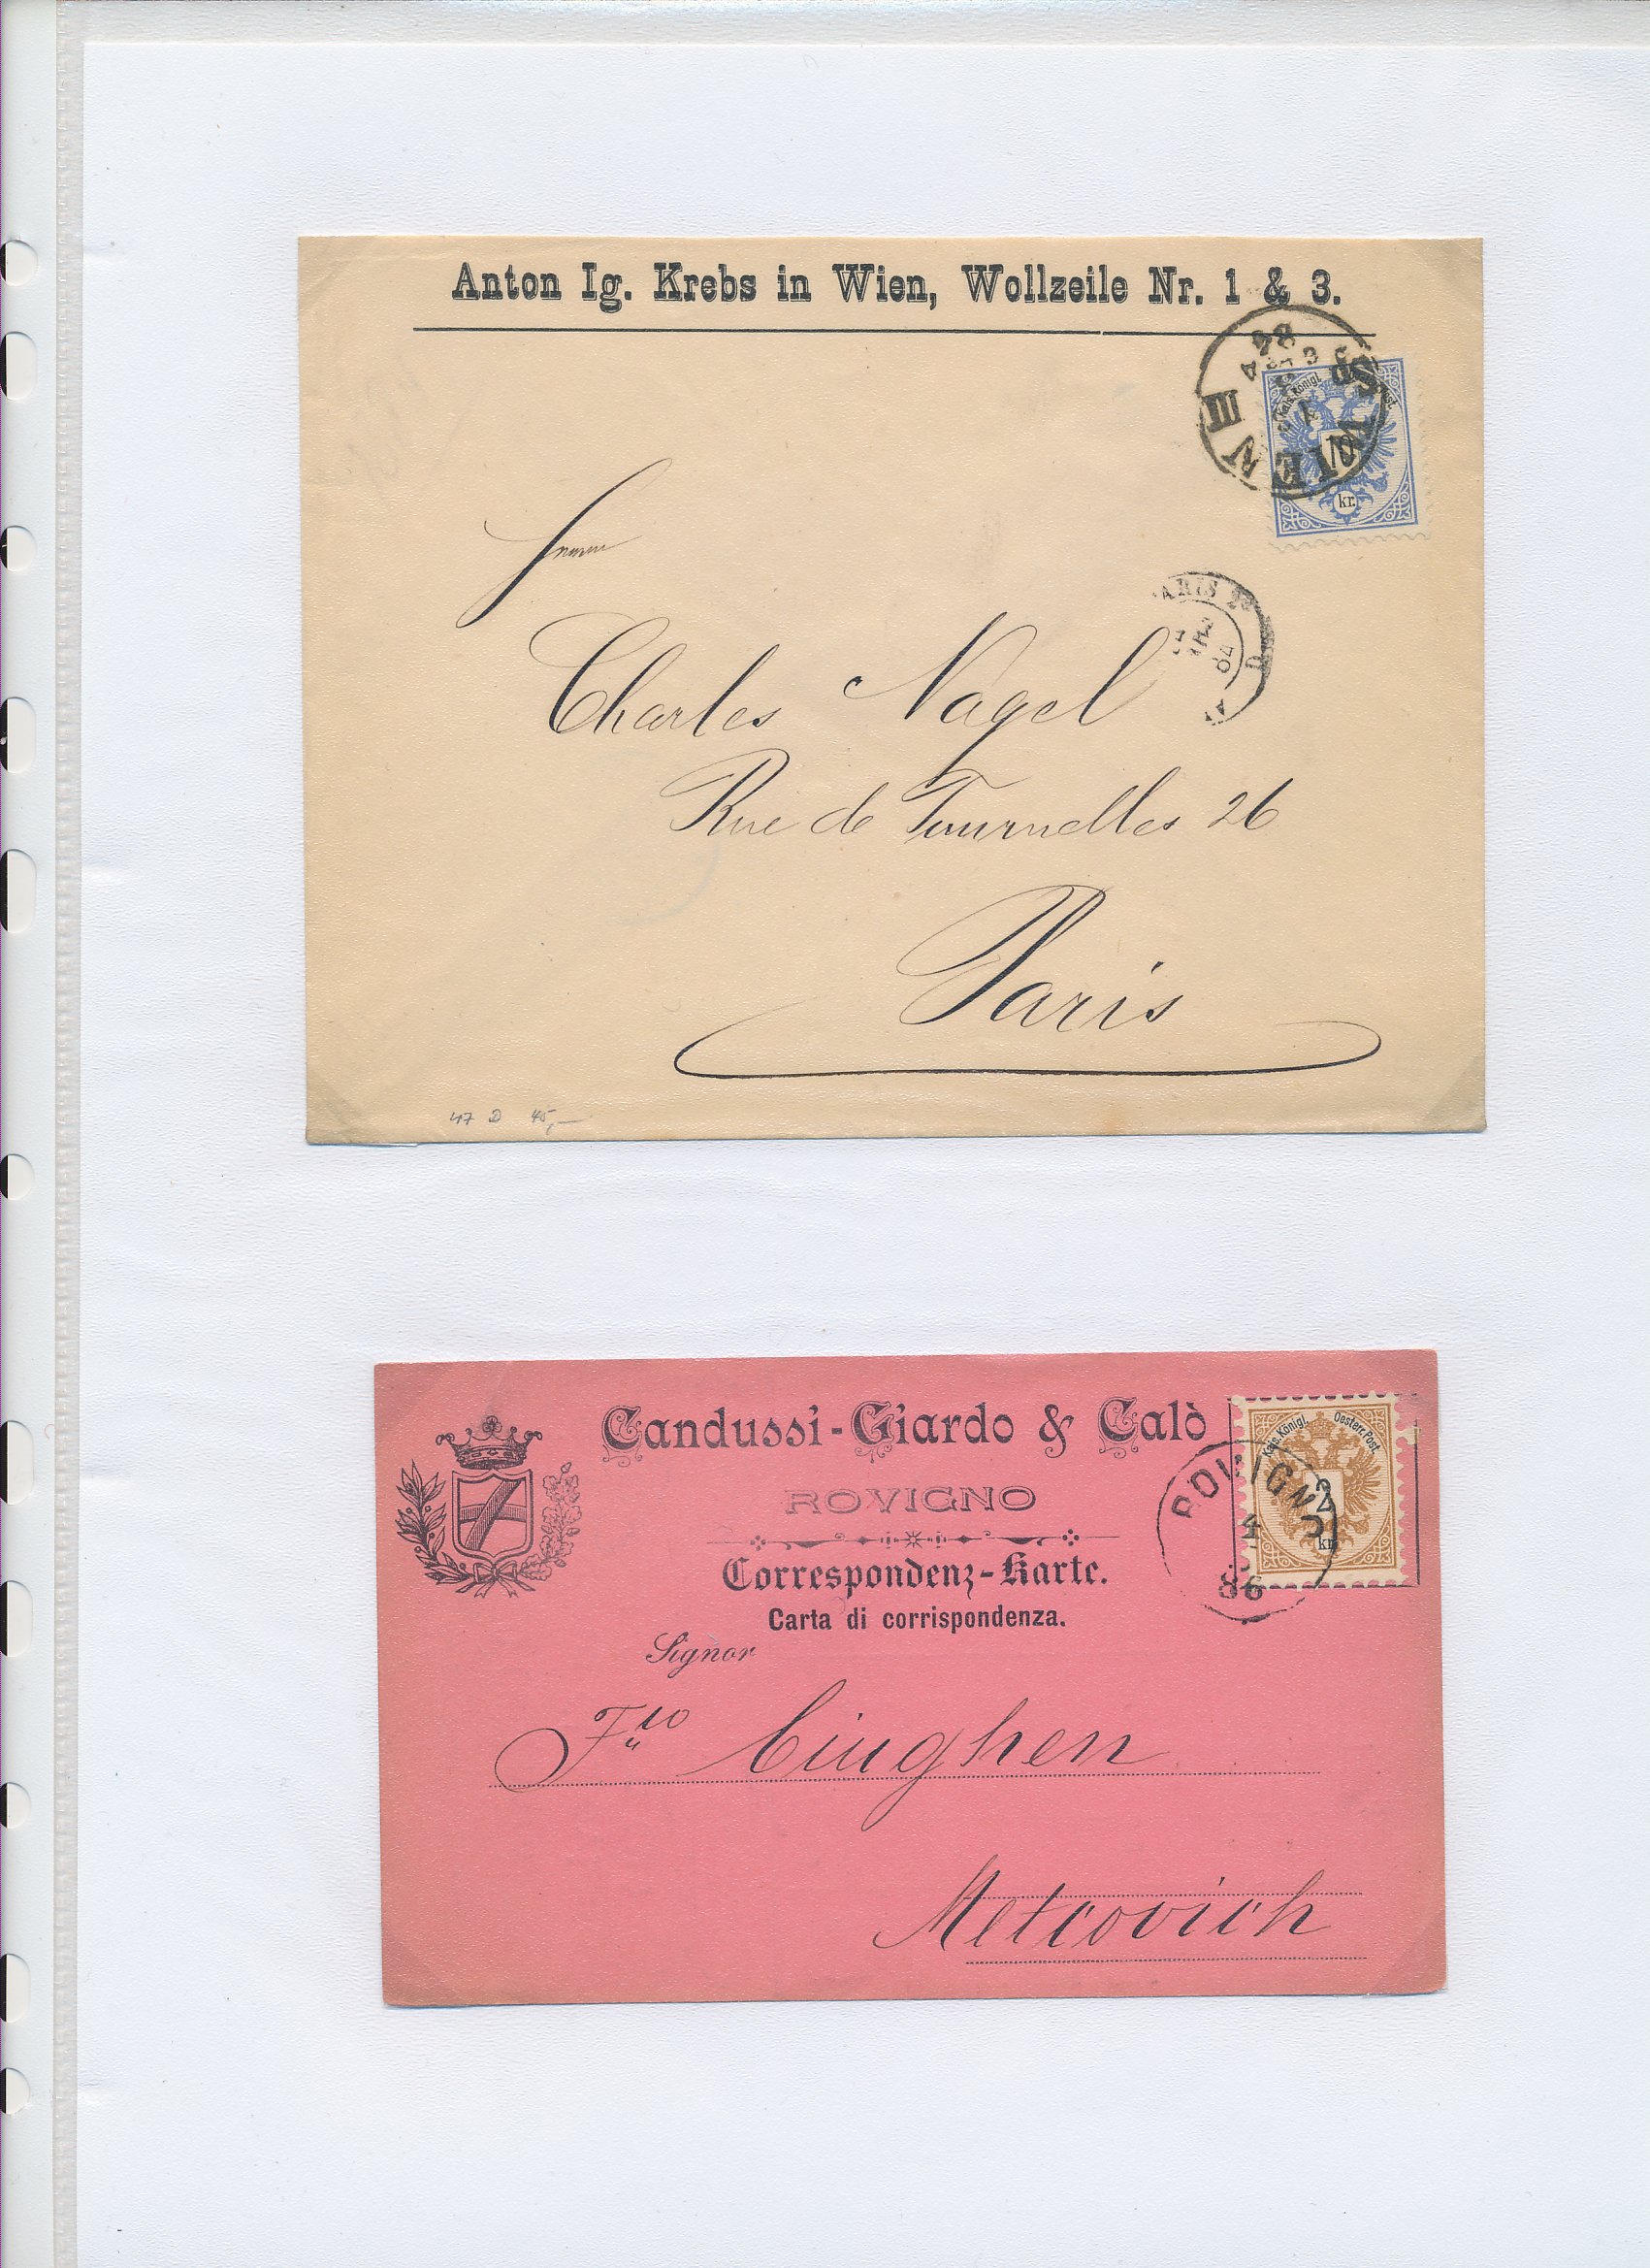 Anton Ig. Krebs in Wien, Wollzeile Nr. 1 & 3.
WIEN III
84
Kais. Königl.
10
kr.
Charles Nagel
PARIS
84
Rue de Tournelles 26
Paris
47 D 45,-
Candussi-Giardo & Calò
ROVIGNO
Correspondenz-Karte.
Carta di corrispondenza.
Kais. Königl. Oesterr. Post.
2
kr.
ROVIGNO
4
86
Signor
Cinghen
Metcovich